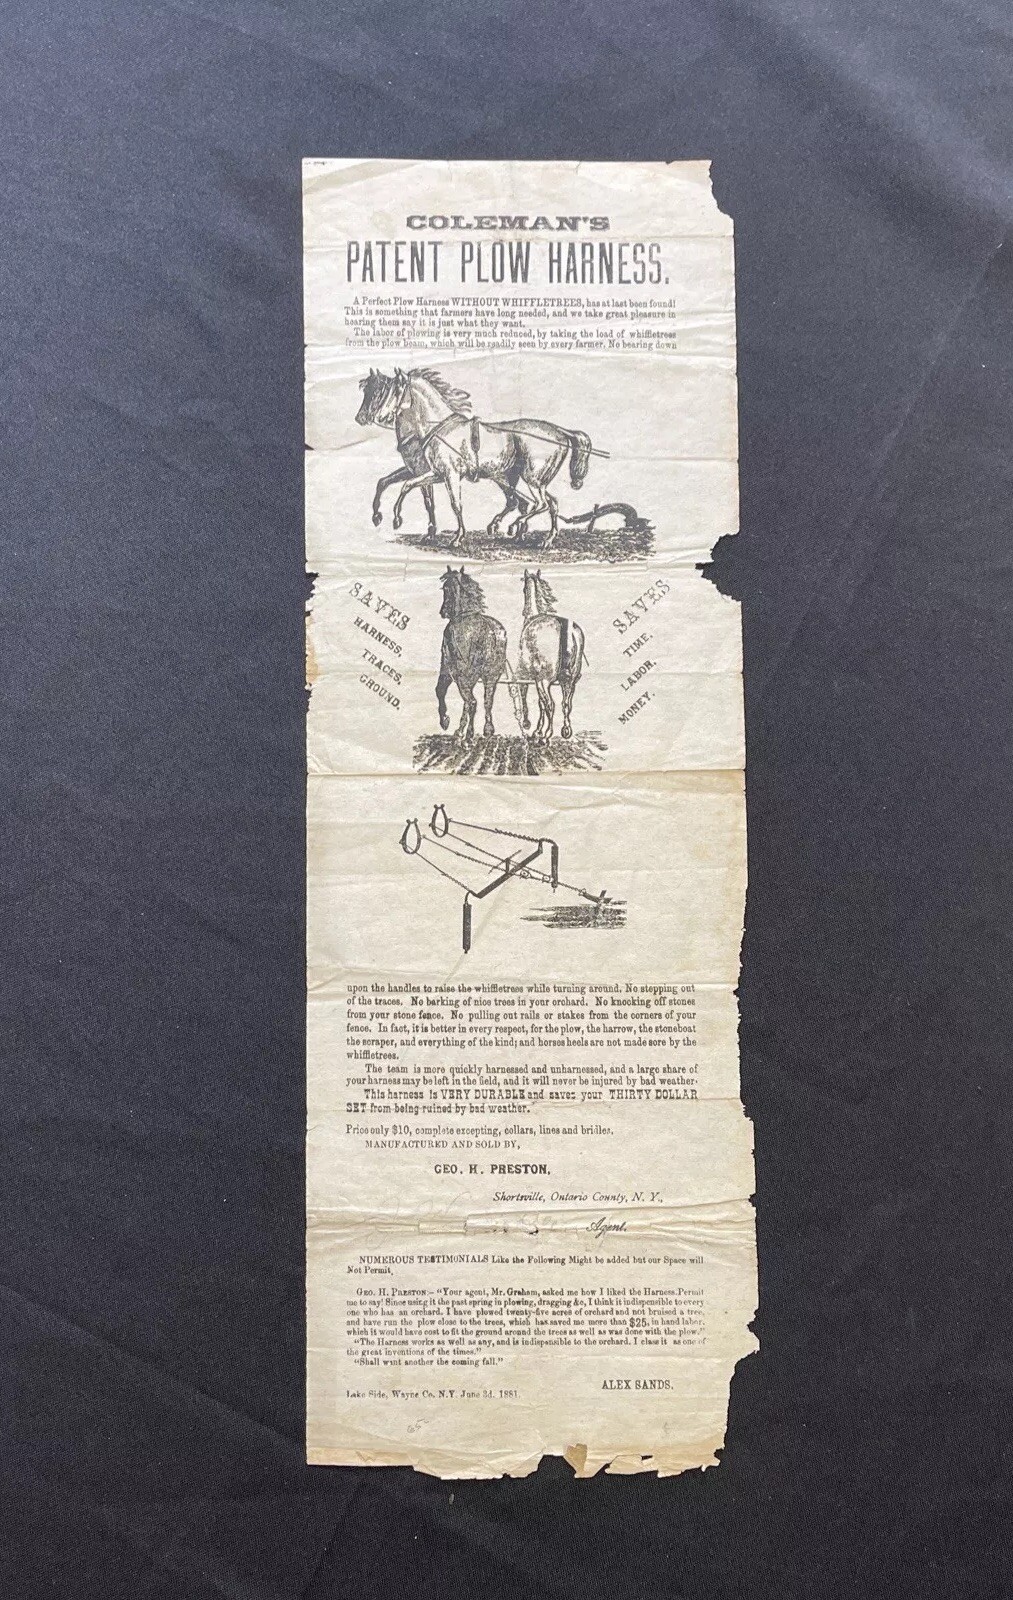 COLEMAN'S
PATENT PLOW HARNESS.
A Perfect Plow Harness WITHOUT WHIFFLETREES, has at last been found!
This is something that farmers have long needed, and we take great pleasure in
hearing them say it is just what they want.
The labor of plowing is very much reduced, by taking the load of whiffletrees
from the plow beam, which will be readily seen by every farmer. No bearing down
SAVES
HARNESS,
TRACES,
GROUND.
SAVES
TIME.
LABOR.
MONEY.
upon the handles to raise the whiffletrees while turning around. No stepping out
of the traces. No barking of nice trees in your orchard. No knocking off stones
from your stone fence. No pulling out rails or stakes from the corners of your
fence. In fact, it is better in every respect, for the plow, the harrow, the stoneboat
the scraper, and everything of the kind; and horses heels are not made sore by the
whiffletrees.
The team is more quickly harnessed and unharnessed, and a large share of
your harness may be left in the field, and it will never be injured by bad weather.
This harness is VERY DURABLE and saves your THIRTY DOLLAR
SET from being ruined by bad weather.
Price only $10, complete excepting, collars, lines and bridles.
MANUFACTURED AND SOLD BY,
GEO. H. PRESTON,
Shortsville, Ontario County, N. Y.,
Agent.
NUMEROUS TESTIMONIALS Like the Following Might be added but our Space will
Not Permit.
GEO. H. PRESTON:- "Your agent, Mr. Graham, asked me how I liked the Harness. Permit
me to say! Since using it the past spring in plowing, dragging &c, I think it indispensible to every
one who has an orchard. I have plowed twenty-five acres of orchard and not bruised a tree,
and have run the plow close to the trees, which has saved me more than $25, in hand labor,
which it would have cost to fit the ground around the trees as well as was done with the plow."
"The Harness works as well as any, and is indispensible to the orchard. I class it as one of
the great inventions of the times."
"Shall want another the coming fall."
ALEX SANDS.
Lake Side, Wayne Co. N.Y. June 3d. 1881.
65